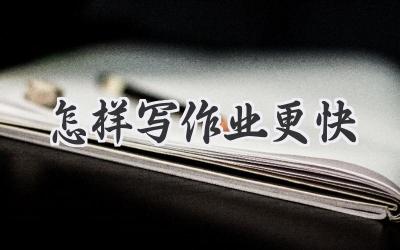 怎样写作业更快